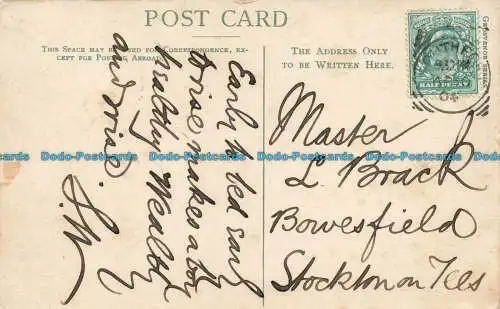 POST CARD
THIS SPACE MAY BE USED FOR CORRESPONDENCE, EX-
CEPT FOR POSTING ABROAD.
THE ADDRESS ONLY
TO BE WRITTEN HERE.
GROSVENOR SERIES
HALF PENNY
04
Early to bed early
to rise makes a boy
healthy Wealthy
and wise
Master
L. Brack
Bowesfield
Stockton on Tees
Dodo-Postcards Dodo-Postcards Dodo-Postcards Dodo-Postcards